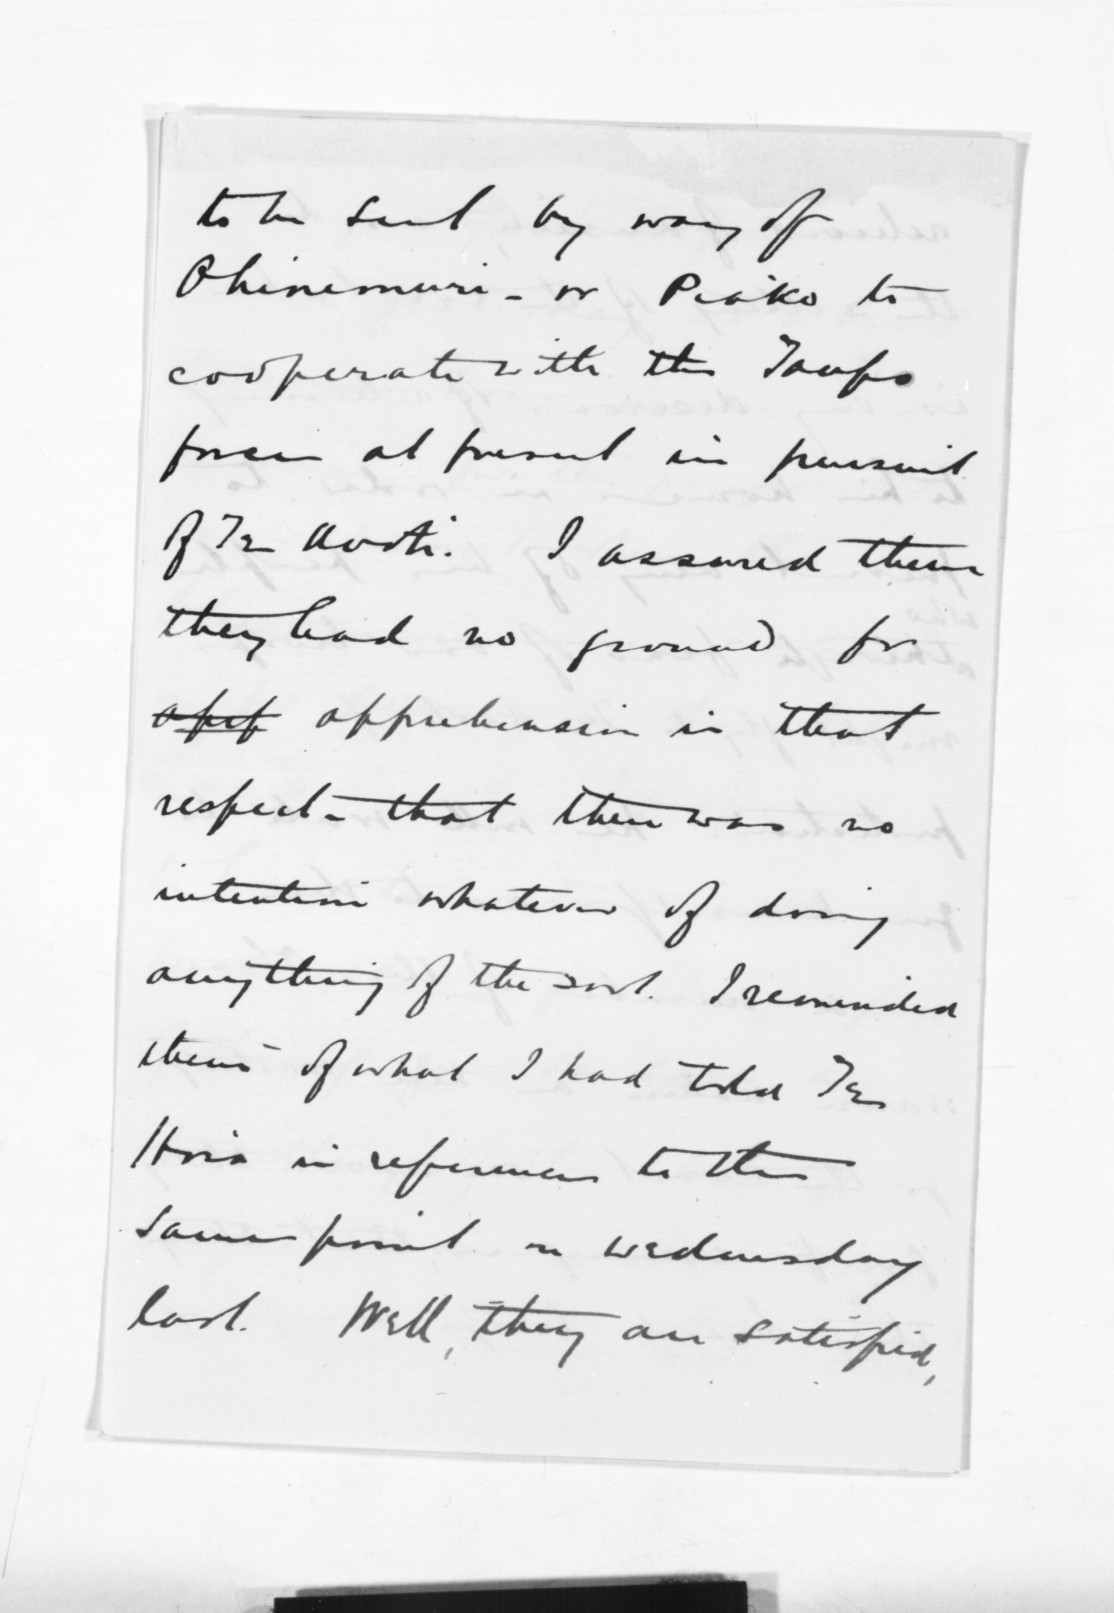 to be sent by way of
Ohinemuri - or Piako to
cooperate with the Taupo
forces at present in pursuit
of Te Kooti. I assured them
they had no ground for
apep apprehension in that
respect - that there was no
intention whatever of doing
anything of the sort. I reminded
them of what I had told Te
Hira in reference to the
same point on Wednesday
last. Well, they are satisfied,